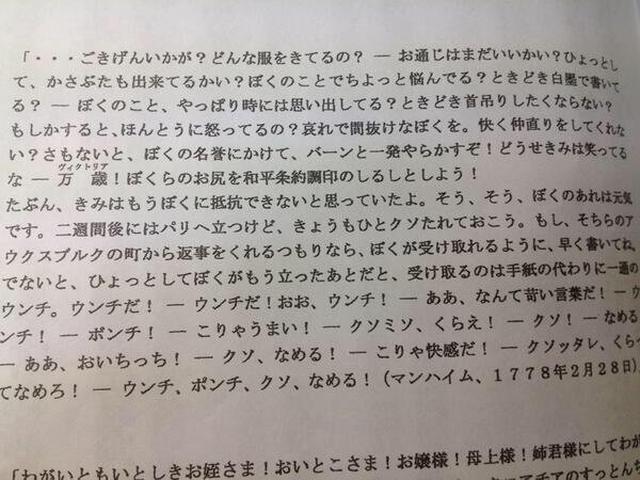 「・・・ごきげんいかが？どんな服をきてるの？ ― お通じはまだいいかい？ひょっとし
て、かさぶたも出来てるかい？ぼくのことでちょっと悩んでる？ときどき白墨で書いて
る？ ― ぼくのこと、やっぱり時には思い出してる？ときどき首吊りしたくならない？
もしかすると、ほんとうに怒ってるの？哀れで間抜けなぼくを。快く仲直りをしてくれな
い？さもないと、ぼくの名誉にかけて、バーンと一発やらかすぞ！どうせきみは笑ってる
ヴィクトリア
な ― 万　歳！ぼくらのお尻を和平条約調印のしるしとしよう！
たぶん、きみはもうぼくに抵抗できないと思っていたよ。そう、そう、ぼくのあれは元気
です。二週間後にはパリへ立つけど、きょうもひとクソたれておこう。もし、そちらのア
ウクスブルクの町から返事をくれるつもりなら、ぼくが受け取れるように、早く書いてね。
でないと、ひょっとしてぼくがもう立ったあとだと、受け取るのは手紙の代わりに一通の
ウンチ。ウンチだ！ ― ウンチだ！おお、ウンチ！ ― ああ、なんて苛い言葉だ！ ― ウ
ンチ！ ― ポンチ！ ― こりゃうまい！ ― クソミソ、くらえ！ ― クソ！ ― なめる
― ああ、おいちっち！ ― クソ、なめる！ ― こりゃ快感だ！ ― クソッタレ、くらっ
てなめろ！ ― ウンチ、ポンチ、クソ、なめる！（マンハイム、１７７８年２月２８日）
「わがいともいとしきお姪さま！おいとこさま！お嬢様！母上様！姉君様にしてわが